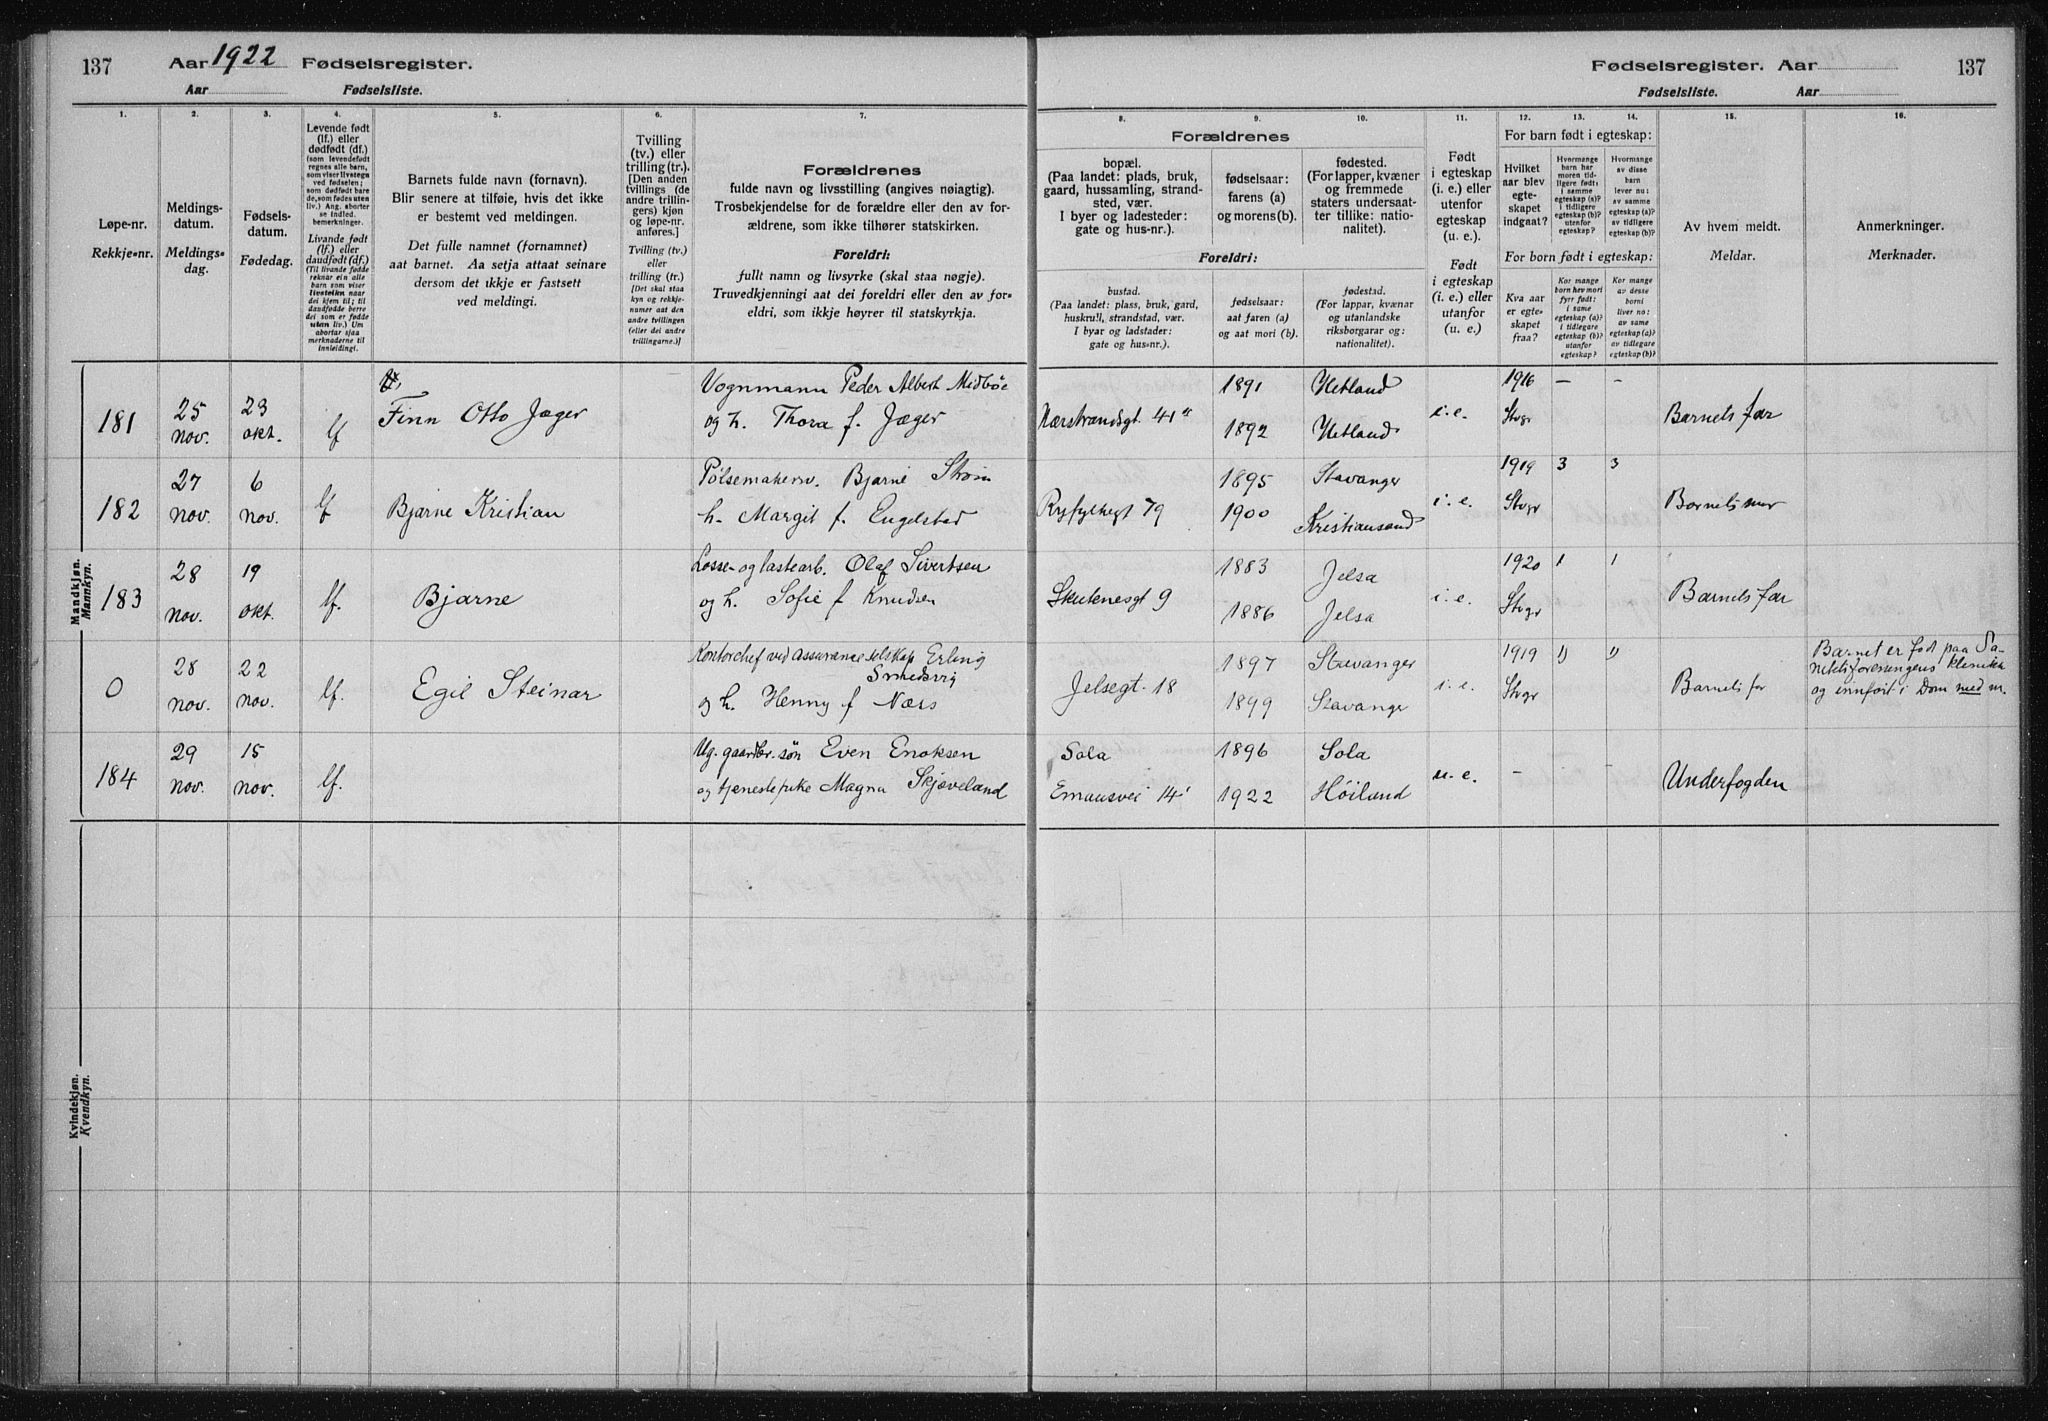 137 Aar 1922 Fødselsregister.
Aar Fødselsliste.
Fødselsregister. Aar 137
Fødselsliste. Aar
1. 2. 3. 4. 5. 6. 7. 8. 9. 10. 11. 12. 13. 14. 15. 16.
Løpe-nr.
Rekkje-nr.
Meldings-
datum.
Meldings-
dag.
Fødsels-
datum.
Fødedag.
Levende født
(lf.) eller
dødfødt (df.)
(som levendefødt
regnes alle barn,
som viser livstegn
ved fødselen;
som dødfødt bare
de, som fødes uten
liv.) Ang. aborter
se indled.
bemerkninger.
Livande født
(lf.) eller
daudfødt (df.)
(Til livande fødde
reknar ein alle
barn som viser
livsteikn naar
dei kjem til; til
daudfødde berre
dei som er fødde
utan liv.) Um
abortar sjaa
merknaderne til
innleidingi.
Barnets fulde navn (fornavn).
Blir senere at tilføie, hvis det ikke
er bestemt ved meldingen.
Det fulle namnet (fornamnet)
aat barnet. Aa setja attaat seinare
dersom det ikkje er fastsett
ved meldingi.
Tvilling
(tv.) eller
trilling (tr.).
[Den anden
tvillings (de
andre trillin-
gers) kjøn
og løpe-nr.
anføres.]
Tvilling (tv.)
eller
trilling (tr.)
[Det skal staa
kyn og rekkje-
numer aat den
andre tvillingen
(eller dei andre
trillingarne.)]
Forældrenes
fulde navn og livsstilling (angives nøiagtig).
Trosbekjendelse for de forældre eller den av for-
ældrene, som ikke tilhører statskirken.
Foreldri:
fullt namn og livsyrke (skal staa nøgje).
Truvedkjenningi aat dei foreldri eller den av for-
eldri, som ikkje høyrer til statskyrkja.
Forældrenes
bopæl.
(Paa landet: plads, bruk,
gaard, hussamling, strand-
sted, vær.
I byer og ladesteder:
gate og hus-nr.).
fødselsaar:
farens (a)
og morens (b).
fødested.
(For lapper, kvæner
og fremmede
staters undersaat-
ter tillike: natio-
nalitet).
Foreldri:
bustad.
(Paa landet: plass, bruk, gard,
huskrull, strandstad, vær.
I byar og ladstader:
gate og hus-nr.).
fødselsaar:
aat faren (a)
og aat mori (b).
fødestad.
(For lappar, kvænar
og utanlandske
riksborgarar og:
nationalitet).
Født
i egteskap
(i. e.) eller
utenfor
egteskap
(u. e.).
Født
i egteskap
(i. e.) eller
utanfor
(u. e.).
For barn født i egteskap:
Hvilket
aar blev
egte-
skapet
indgaat?
Hvormange
barn har
moren tid-
ligere født:
i samme
egteskap (a)?
i tidligere
egteskap (b)?
utenfor
egteskap?
Hvormange
av disse
barn
lever nu:
av samme
egteskap (a)?
av tidligere
egteskap (b)?
For born født i egteskap:
Kva aar
er egte-
skapet
fraa?
Kor mange
born hev mori
fyrr født:
i same
egteskap (a)?
i tidlegare
egteskap (b)?
utanfor
egteskap?
Kor mange
av desse
borni
liver no:
av same
egteskap (a)?
av tidlegare
egteskap (b)?
Av hvem meldt.
Meldar.
Anmerkninger.
Merknader.
Mandkjøn.
Mannkyn.
181 25 nov. 23 okt. lf Finn Otto Jæger
Vognmann Peder Albert Midbøe
og h. Thora f. Jæger
Nærstrandsgt. 41 1891 Hetland i. e. 1916 Stvgr — — Barnets far
1892 Hetland
182 27 nov. 6 nov. lf Bjarne Kristian
Pølsemakersv. Bjarne Strøm
h. Margit f. Engelstad
Ryfylkegt 79 1895 Stavanger i. e. 1919 Stvgr 3 3 Barnets mor
1900 Kristiansand
183 28 nov. 19 okt. lf. Bjarne
Losse- og lastearb. Olaf Sivertsen
og h. Sofie f Knudsen
Skutenesgt 9 1883 Jelsa i. e. 1920 Stvgr 1 1 Barnets far
1886 Jelsa
0 28 nov. 22 nov. lf. Egil Steinar
Kontorchef ved assuranceselskap Erling
Smedsvig
og h. Henny f Næss
Jelsegt. 18 1897 Stavanger i. e. 1919 Stvgr " " Barnets far
1899 Stavanger
Barnet er født paa Sa-
nitetsforeningens klinikk
og innført i Dom med nr.
184 29 nov. 15 nov. lf.
Ug. gaardbr. søn Even Enoksen
og tjenestepike Magna Skjæveland
Sola 1896 Sola u. e. - - - Underfogden
Emausvei 14 1922 Høiland
Kvindekjøn.
Kvendkyn.